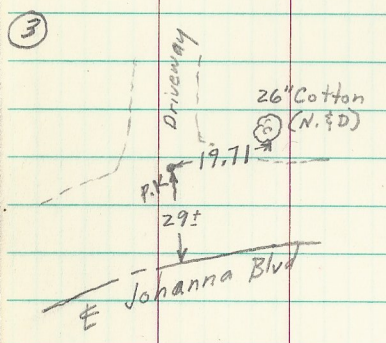 3
Driveway
26" Cotton
(N.&D)
19.71
P.K
29±
℄ Johanna Blvd